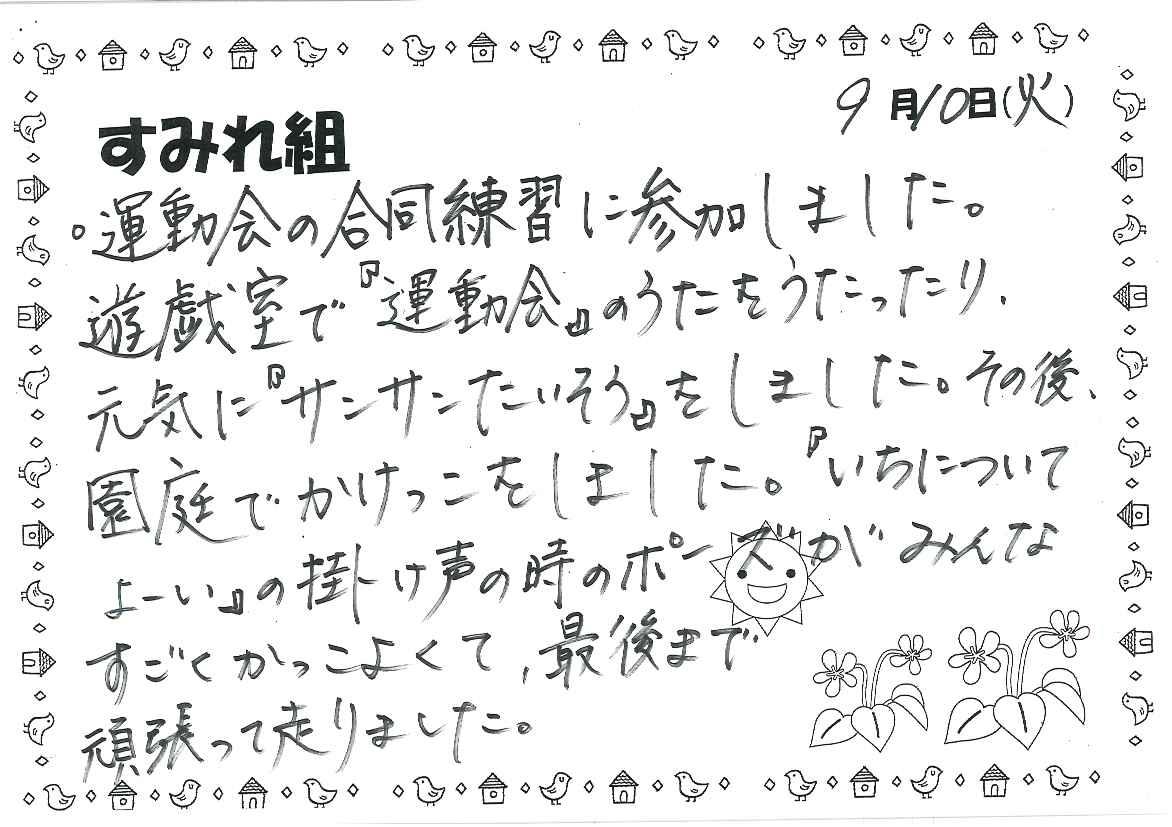 9月10日(火)
すみれ組
。運動会の合同練習に参加しました。
遊戯室で『運動会』のうたをうたったり、
元気に『サンサンたいそう』をしました。その後、
園庭でかけっこをしました。『いちについて
よーい』の掛け声の時のポーズがみんな
すごくかっこよくて、最後まで
頑張って走りました。